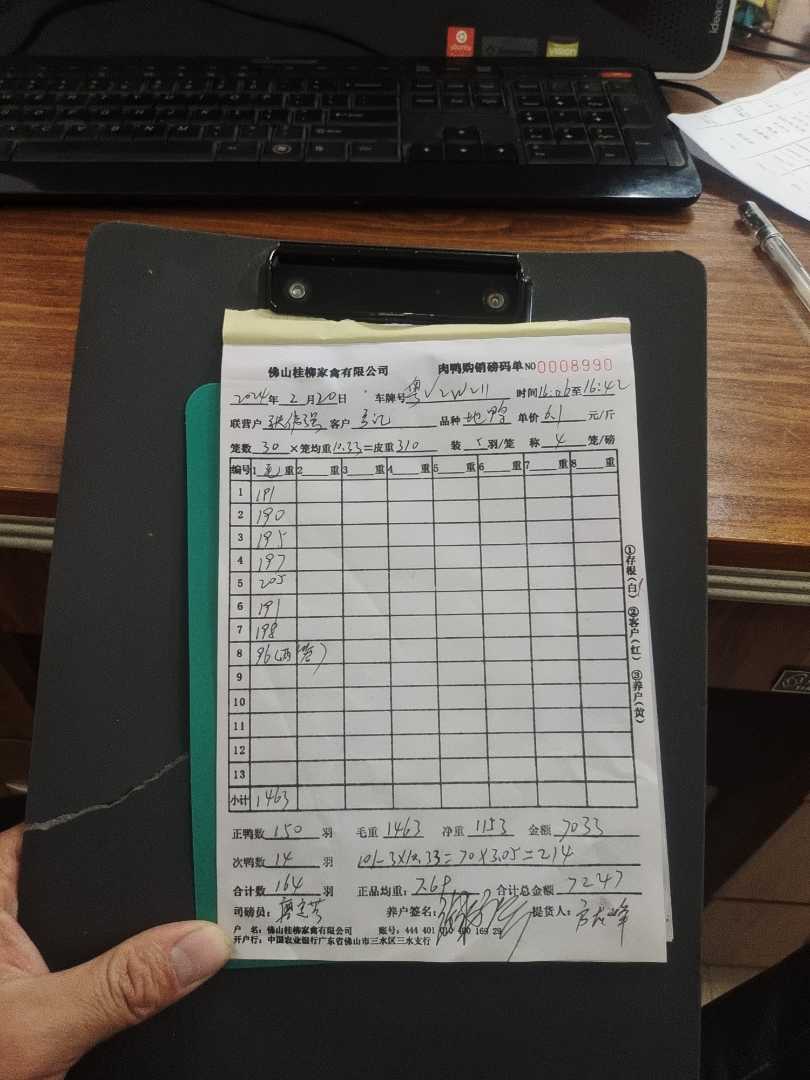 ubuntu
佛山桂柳家禽有限公司 肉鸭购销磅码单 NO 0008990
2024年 2月20日 车牌号 粤V2W211 时间16:06至16:42
联营户 客户 品种 地鸭 单价 6.1 元/斤
笼数 30 ×笼均重10.33=皮重310 装 5羽/笼 称 4 笼/磅
编号 1 毛 重 2 重 3 重 4 重 5 重 6 重 7 重 8 重
1 191
2 190
3 195
4 197
5 205
6 191
7 198
8 96(两笼)
9
10
11
12
13
小计 1463
①存根(白) ②客户(红) ③养户(黄)
正鸭数 150 羽 毛重 1463 净重 1153 金额 7033
次鸭数 14 羽 101-3×10.33=70×3.05=214
合计数 164 羽 正品均重: 7.69 合计总金额 7247
司磅员: 养户签名: 提货人:
户 名: 佛山桂柳家禽有限公司 账号: 444 401 010 400 169 29
开户行: 中国农业银行广东省佛山市三水区三水支行